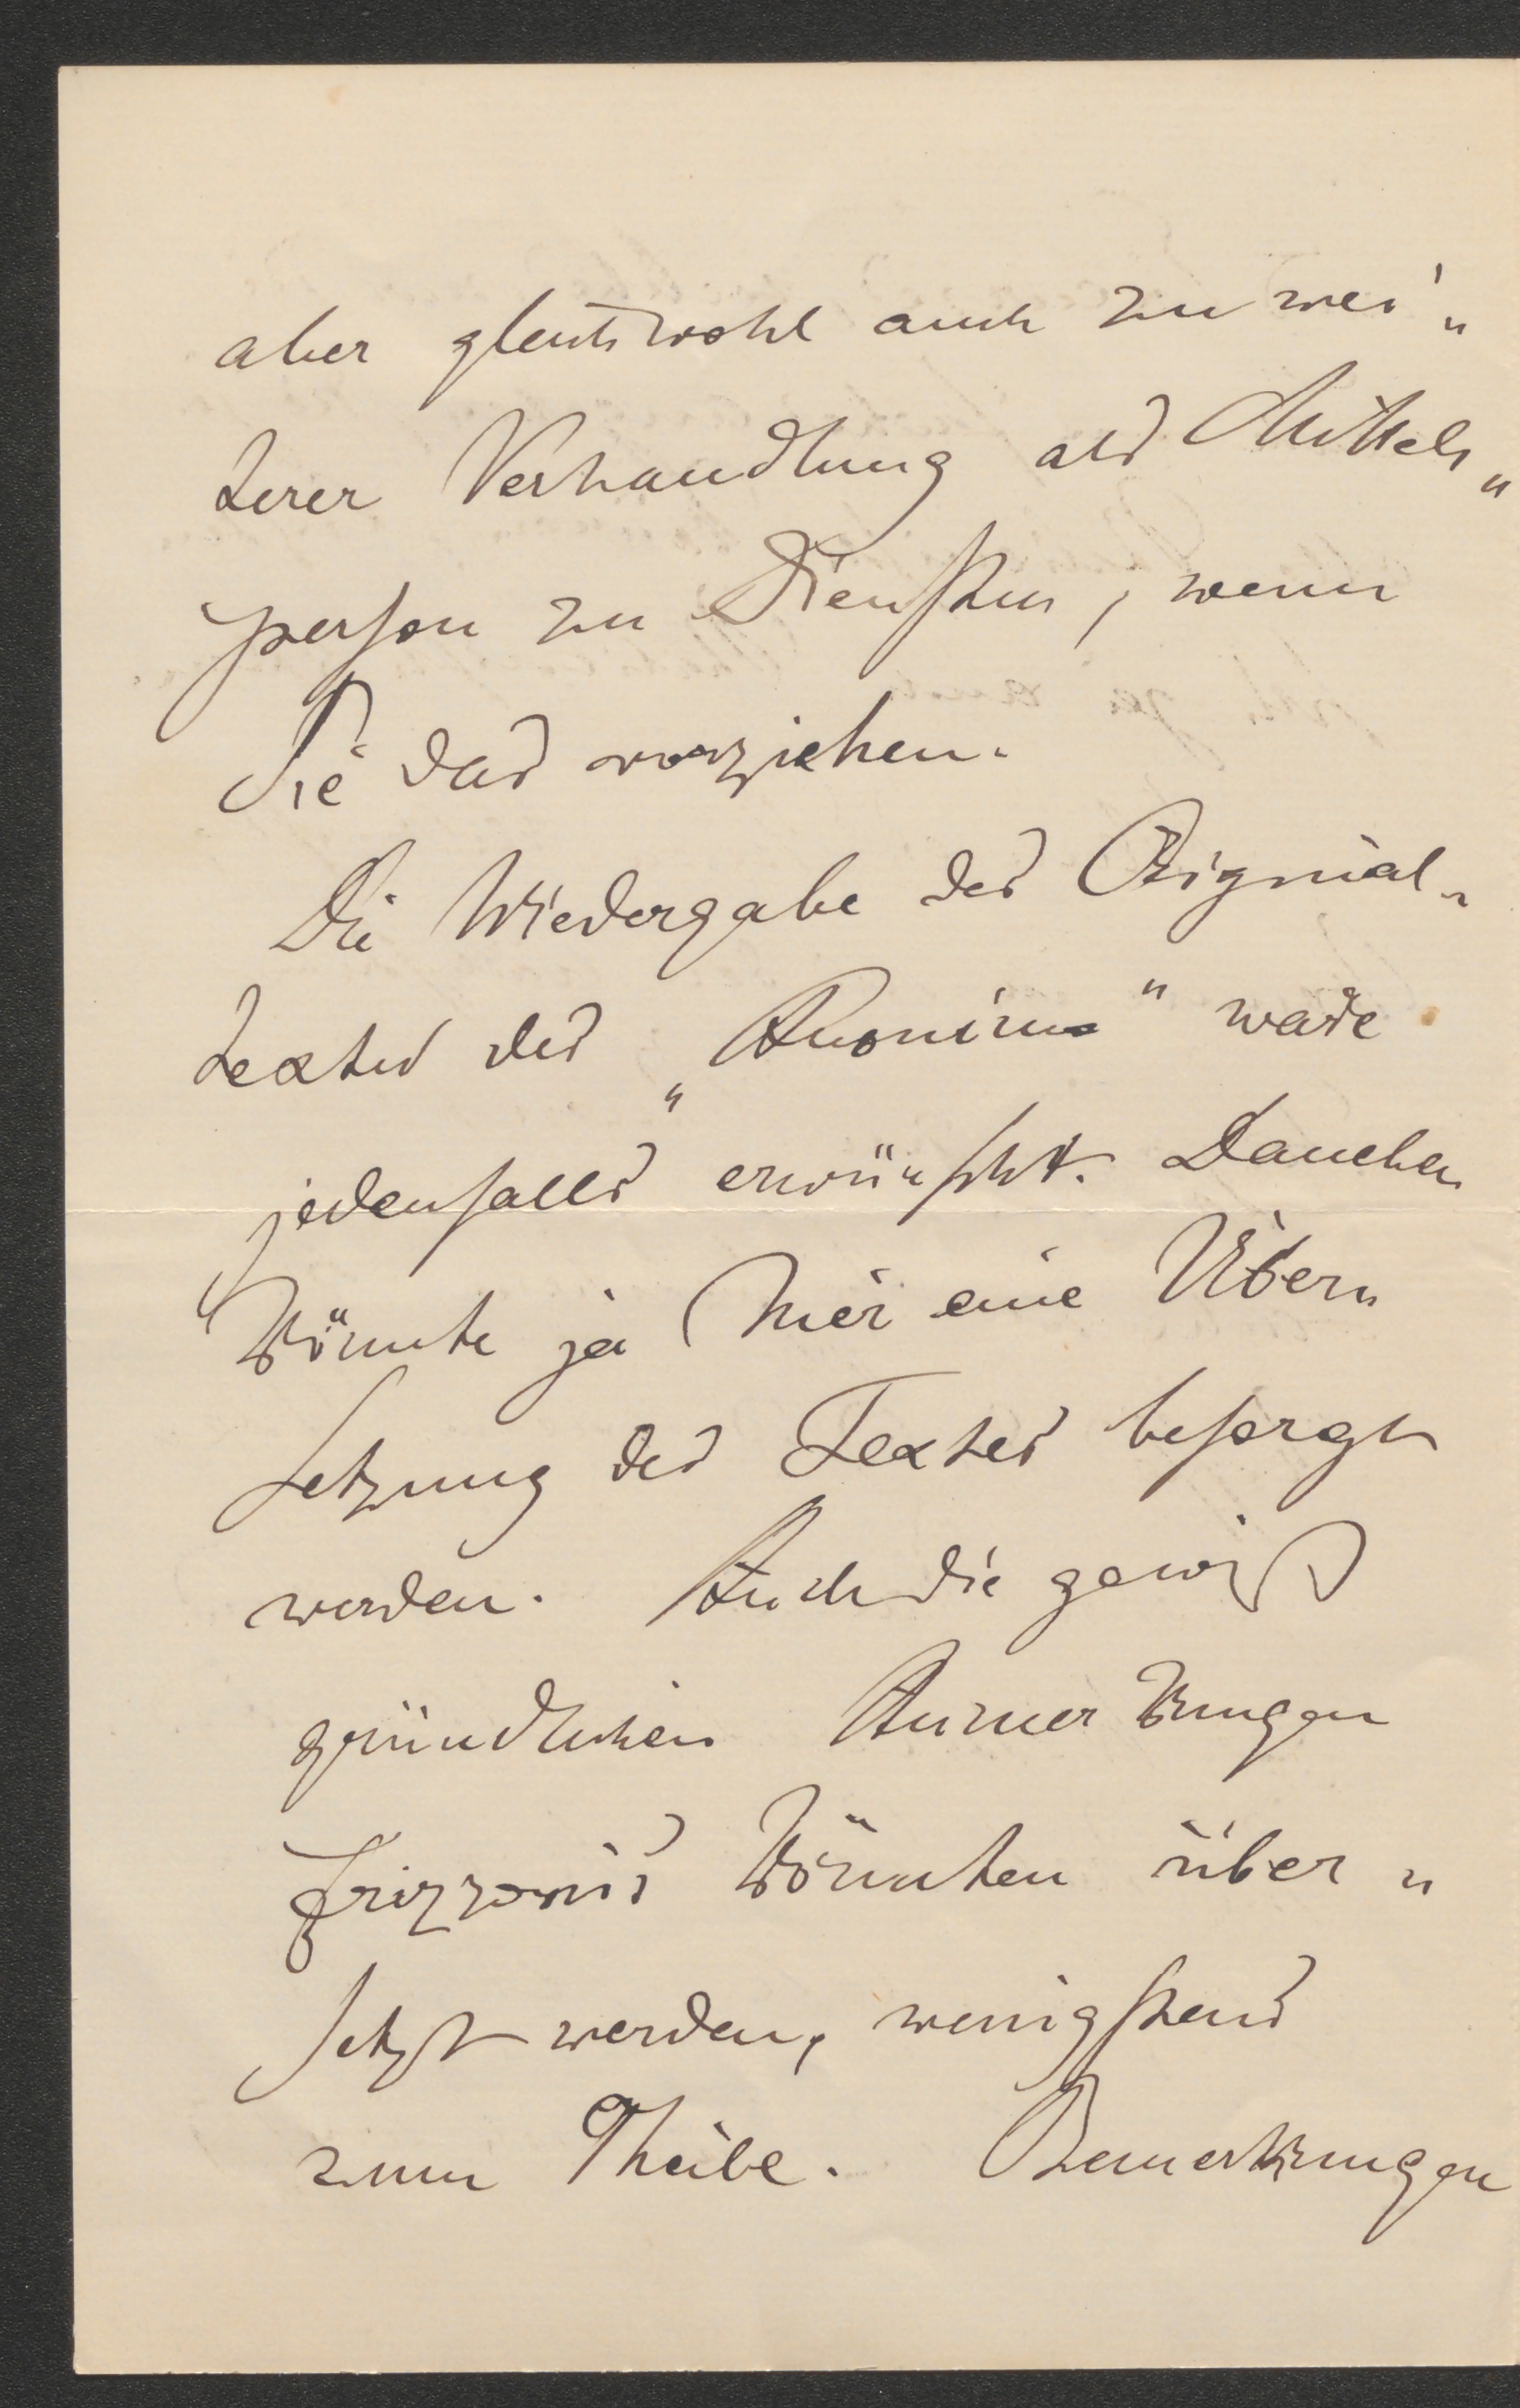 aber gleichwohl auch zu wei„
terer Verhandlung als Mittels„
person zu Diensten, wenn
Sie das vorziehen.
Die Wiedergabe des Original„
textes des „Anonimo" wäre
jedenfalls erwünscht. Daneben
könnte ja hier eine Über„
setzung des Textes besorgt
werden. Auch die gewiß
gründlichen Anmerkungen
Frizzoni's könnten über„
setzt werden, wenigstens
zum Theile. Bemerkungen